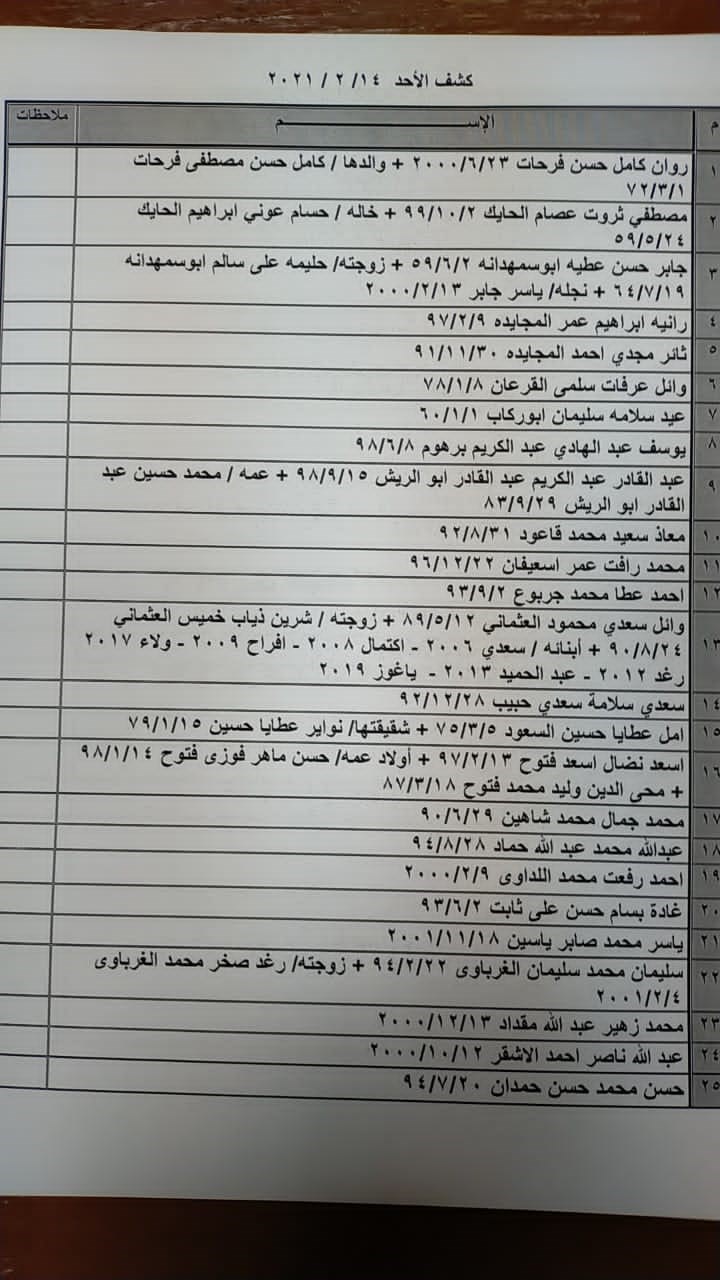 كشف الأحد ١٤/ ٢ / ٢٠٢١
م الإســـــــــــم ملاحظات
١ روان كامل حسن فرحات ٢٠٠٠/٦/٢٣ + والدها / كامل حسن مصطفى فرحات
٧٢/٣/١
٢ مصطفي ثروت عصام الحايك ٩٩/١٠/٢ + خاله / حسام عوني ابراهيم الحايك
٥٩/٥/٢٤
٣ جابر حسن عطيه ابوسمهدانه ٥٩/٦/٢ + زوجته/ حليمه على سالم ابوسمهدانه
٦٤/٧/١٩ + نجله/ ياسر جابر ٢٠٠٠/٢/١٣
٤ رانيه ابراهيم عمر المجايده ٩٧/٢/٩
٥ ثائر مجدي احمد المجايده ٩١/١١/٣٠
٦ وائل عرفات سلمى القرعان ٧٨/١/٨
٧ عيد سلامه سليمان ابوركاب ٦٠/١/١
٨ يوسف عبد الهادي عبد الكريم برهوم ٩٨/٦/٨
٩ عبد القادر عبد الكريم عبد القادر ابو الريش ٩٨/٩/١٥ + عمه / محمد حسين عبد
القادر ابو الريش ٨٣/٩/٢٩
١٠ معاذ سعيد محمد قاعود ٩٢/٨/٣١
١١ محمد رافت عمر اسعيفان ٩٦/١٢/٢٢
١٢ احمد عطا محمد جربوع ٩٣/٩/٢
١٣ وائل سعدي محمود العثماني ٨٩/٥/١٢ + زوجته / شرين ذياب خميس العثماني
٩٠/٨/٢٤ + أبنائه / سعدي ٢٠٠٦ - اكتمال ٢٠٠٨ - افراح ٢٠٠٩ - ولاء ٢٠١٧
رغد ٢٠١٢ - عبد الحميد ٢٠١٣ - ياغوز ٢٠١٩
١٤ سعدي سلامة سعدي حبيب ٩٢/١٢/٢٨
١٥ امل عطايا حسين السعود ٧٥/٣/٥ + شقيقتها/ نواير عطايا حسين ٧٩/١/١٥
١٦ اسعد نضال اسعد فتوح ٩٧/٢/١٣ + أولاد عمه/ حسن ماهر فوزى فتوح ٩٨/١/١٤
+ محى الدين وليد محمد فتوح ٨٧/٣/١٨
١٧ محمد جمال محمد شاهين ٩٠/٦/٢٩
١٨ عبدالله محمد عبد الله حماد ٩٤/٨/٢٨
١٩ احمد رفعت محمد اللداوى ٢٠٠٠/٢/٩
٢٠ غادة بسام حسن على ثابت ٩٣/٦/٢
٢١ ياسر محمد صابر ياسين ٢٠٠١/١١/١٨
٢٢ سليمان محمد سليمان الغرباوى ٩٤/٢/٢٢ + زوجته/ رغد صخر محمد الغرباوى
٢٠٠١/٢/٤
٢٣ محمد زهير عبد الله مقداد ٢٠٠٠/١٢/١٣
٢٤ عبد الله ناصر احمد الاشقر ٢٠٠٠/١٠/١٢
٢٥ حسن محمد حسن حمدان ٩٤/٧/٢٠